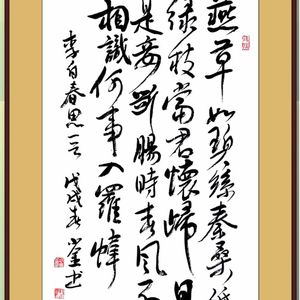 燕草如碧丝秦桑低
绿枝当君怀归日
是妾断肠时春风不
相識何事入羅幃
李白春思一首 戊戌春 堂书